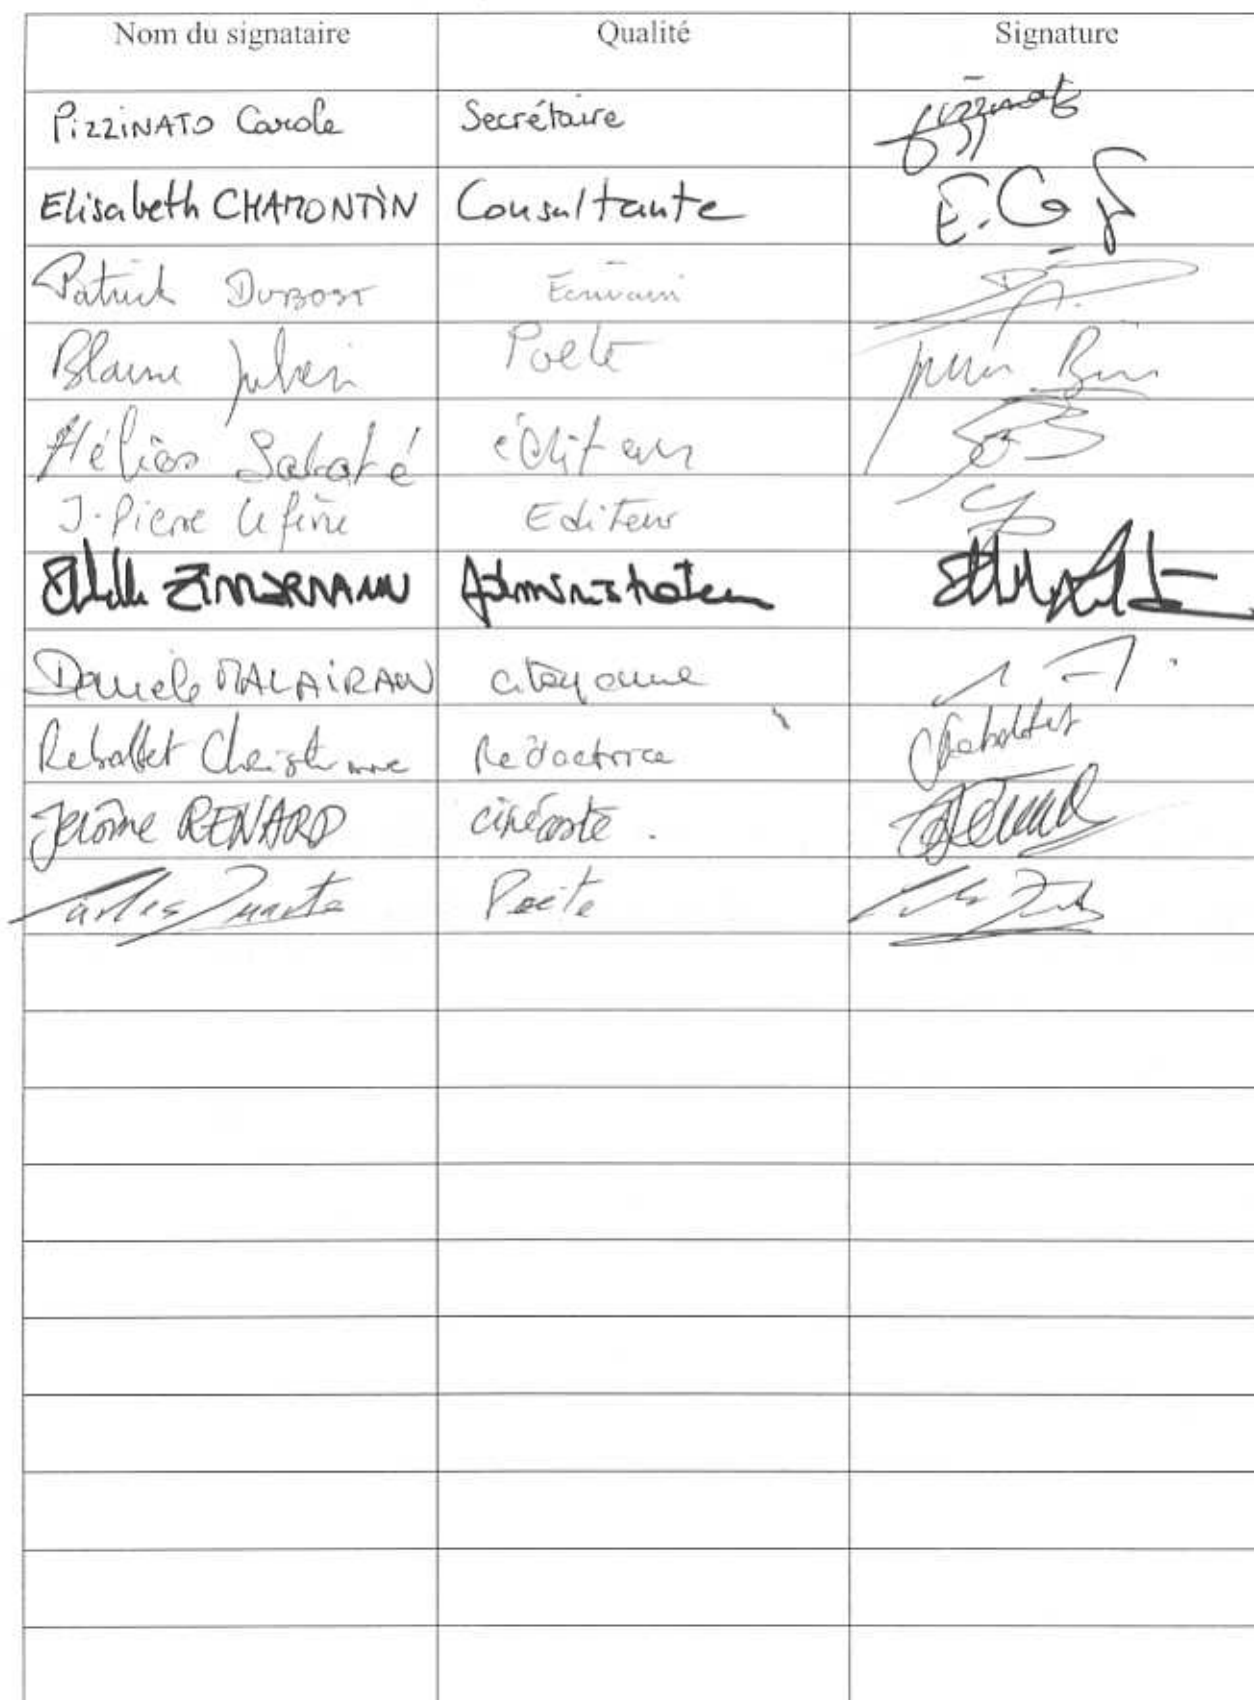 Nom du signataire Qualité Signature
PIZZINATO Carole Secrétaire
Elisabeth CHAMONTIN Consultante E.C
Patrick DUBOST Ecrivain
Blaine Julien Poete
Hélios Sabaté éditeur
J. Pierre Lefèvre Editeur
ZIMMERMANN Administrateur
Daniele citoyenne
Reboltet Christianne Redactrice
Jerôme RENARD cinéaste.
Carles Duarte Poète